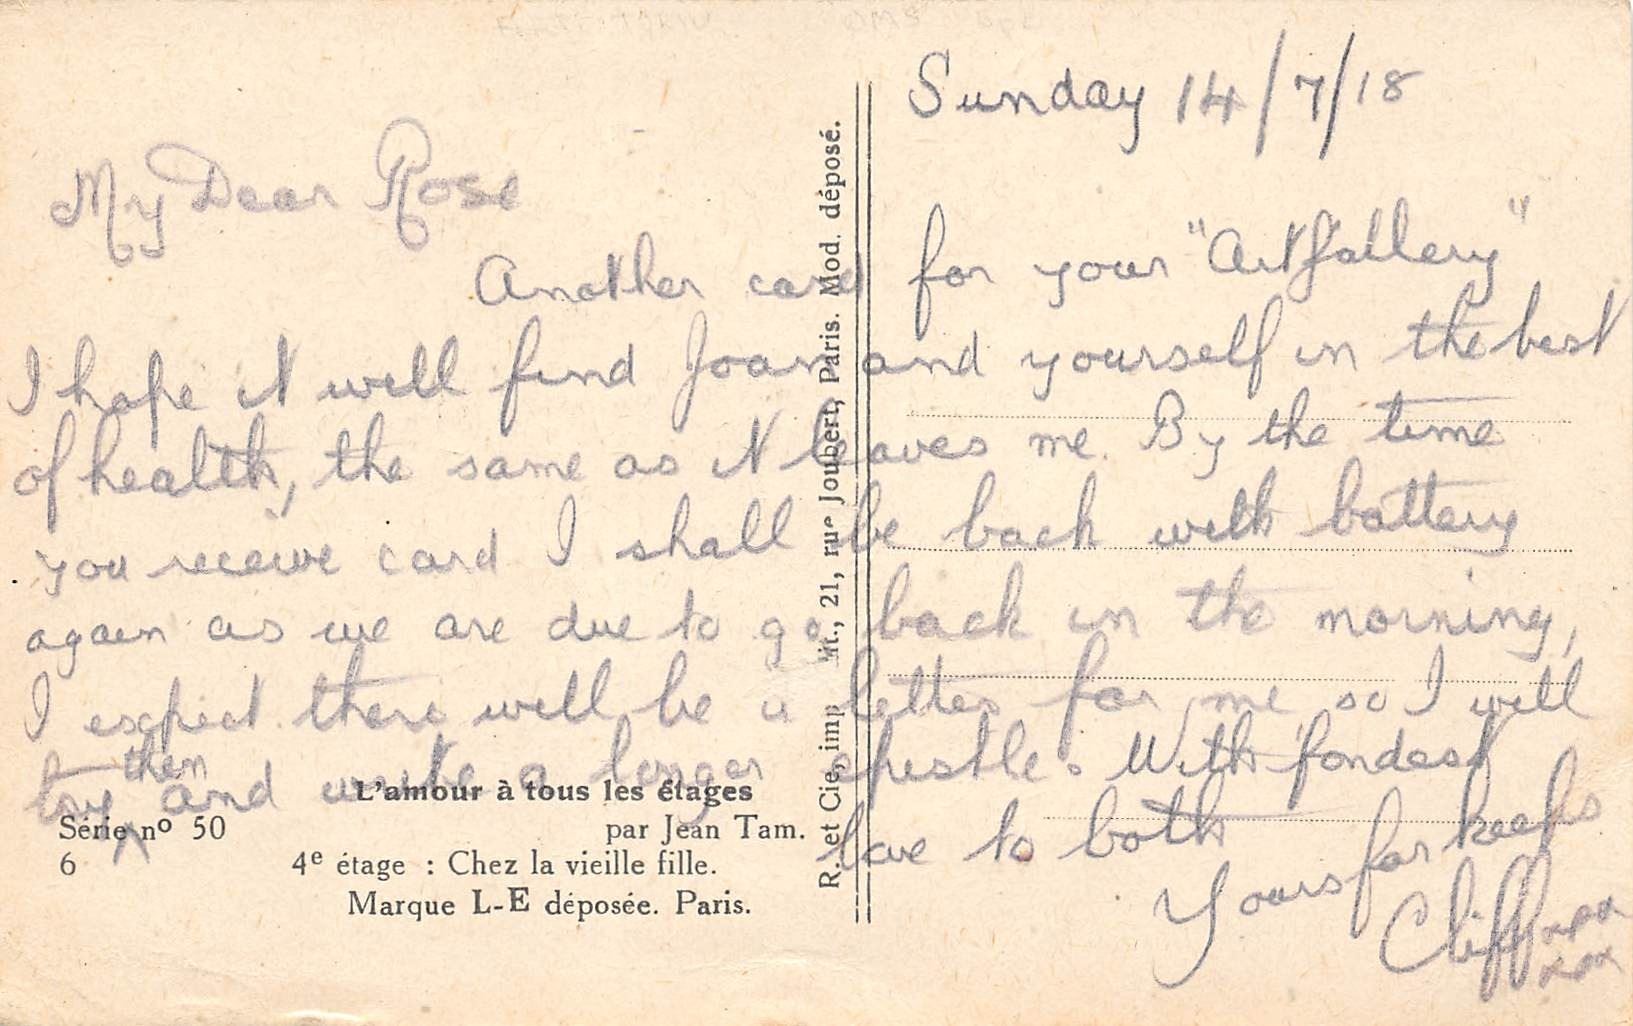 Sunday 14/7/18
My Dear Rose
Another card for your "Art Gallery"
I hope it will find Joan and yourself in the best
of health, the same as it leaves me. By the time
you receive card I shall be back with battery
again as we are due to go back in the morning,
I expect there will be a letter for me, so I will
then
try ^ and write a longer epistle. With fondest
love to both
Yours for keeps
Cliff xxxx
xxxx
L'amour à tous les étages
Série nº 50 par Jean Tam.
6 4e étage : Chez la vieille fille.
Marque L-E déposée. Paris.
R. et Cie, imp Wt., 21, rue Joubert, Paris. Mod. déposé.